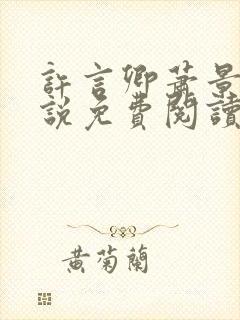 許言卿蕭景
說免費閱讀
黃菊蘭